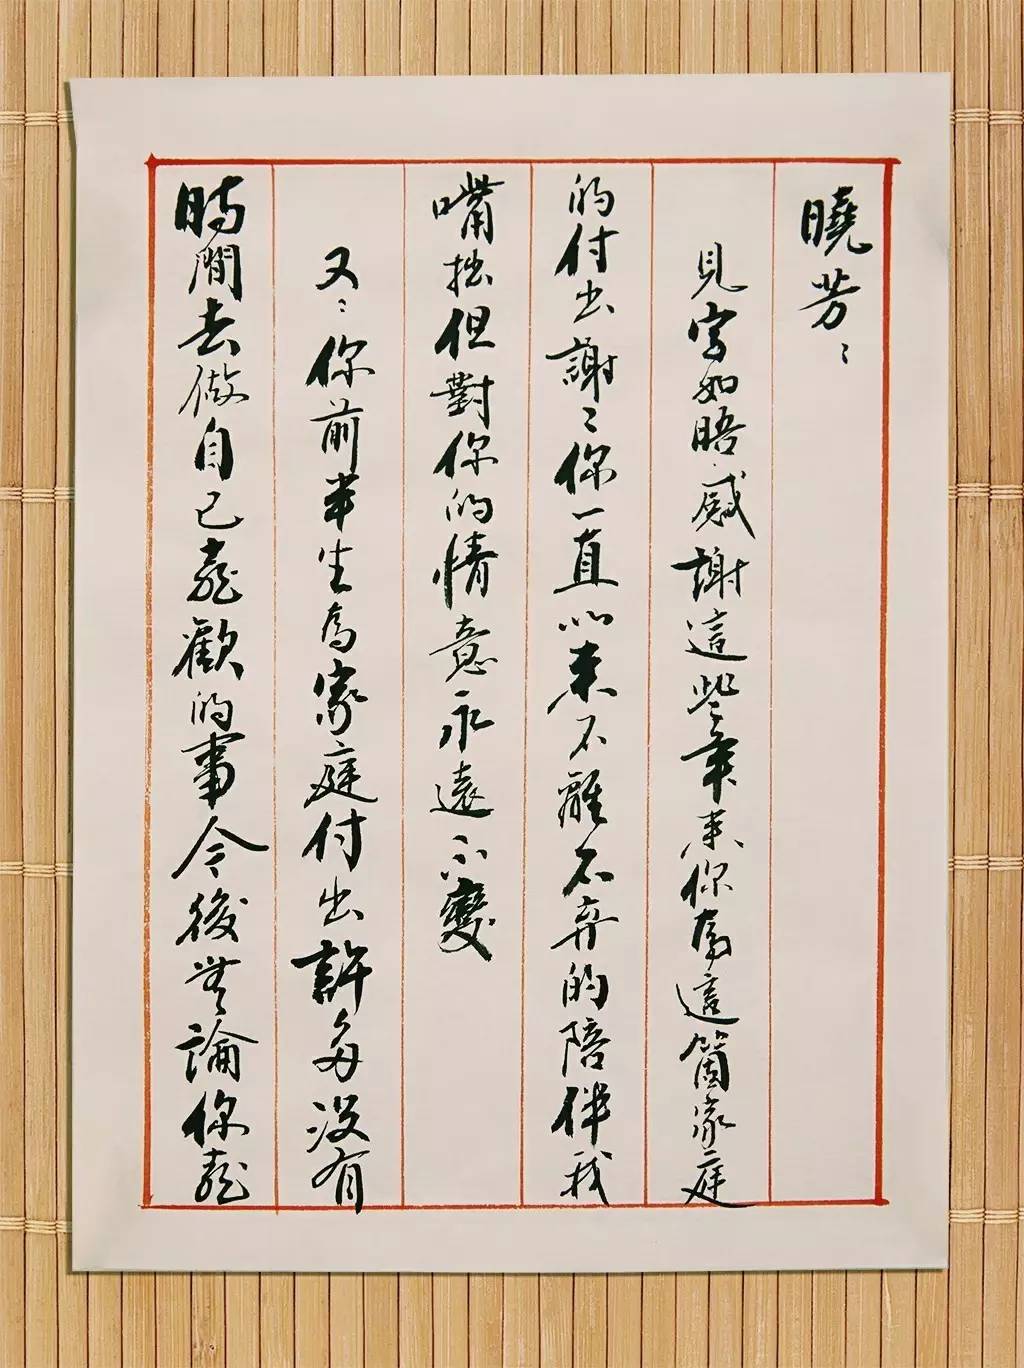 曉芳：
見字如晤感謝這些年来你為這箇家庭
的付出謝〻你一直以来不離不弃的陪伴我
嘴拙但對你的情意永遠不變
又：你前半生為家庭付出許多没有
時間去做自己喜歡的事今後無論你喜